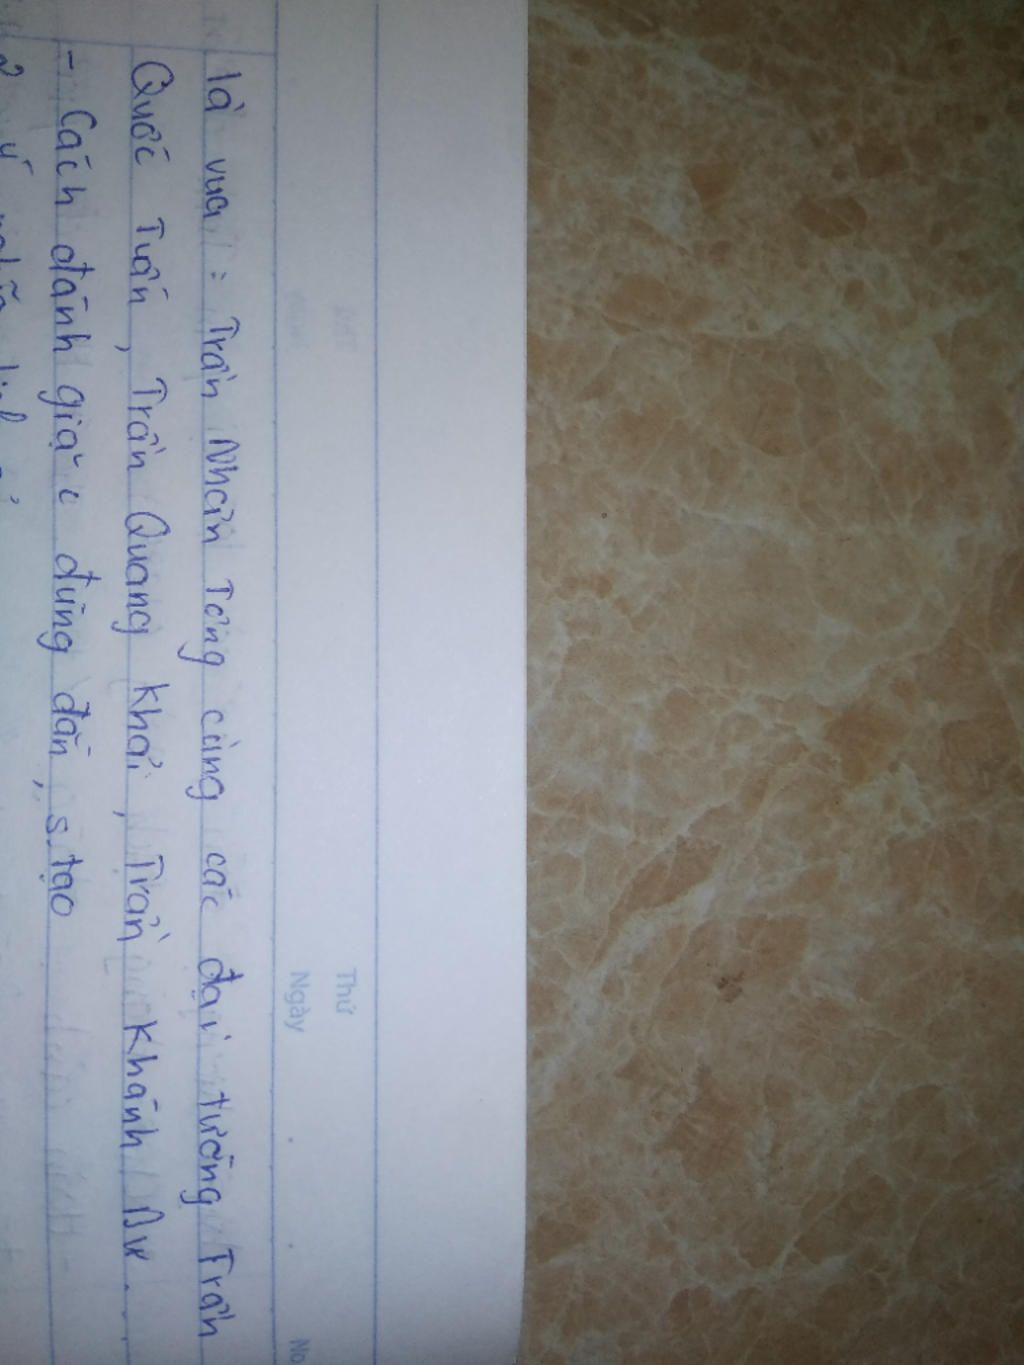 Thứ
Ngày No
là vua : Trần Nhân Tông cùng các đại tướng Trần
Quốc Tuấn, Trần Quang Khải, Trần Khánh Dư...
- Cách đánh giặc đúng đắn, s.tạo
2 ý nghĩa lịch sử